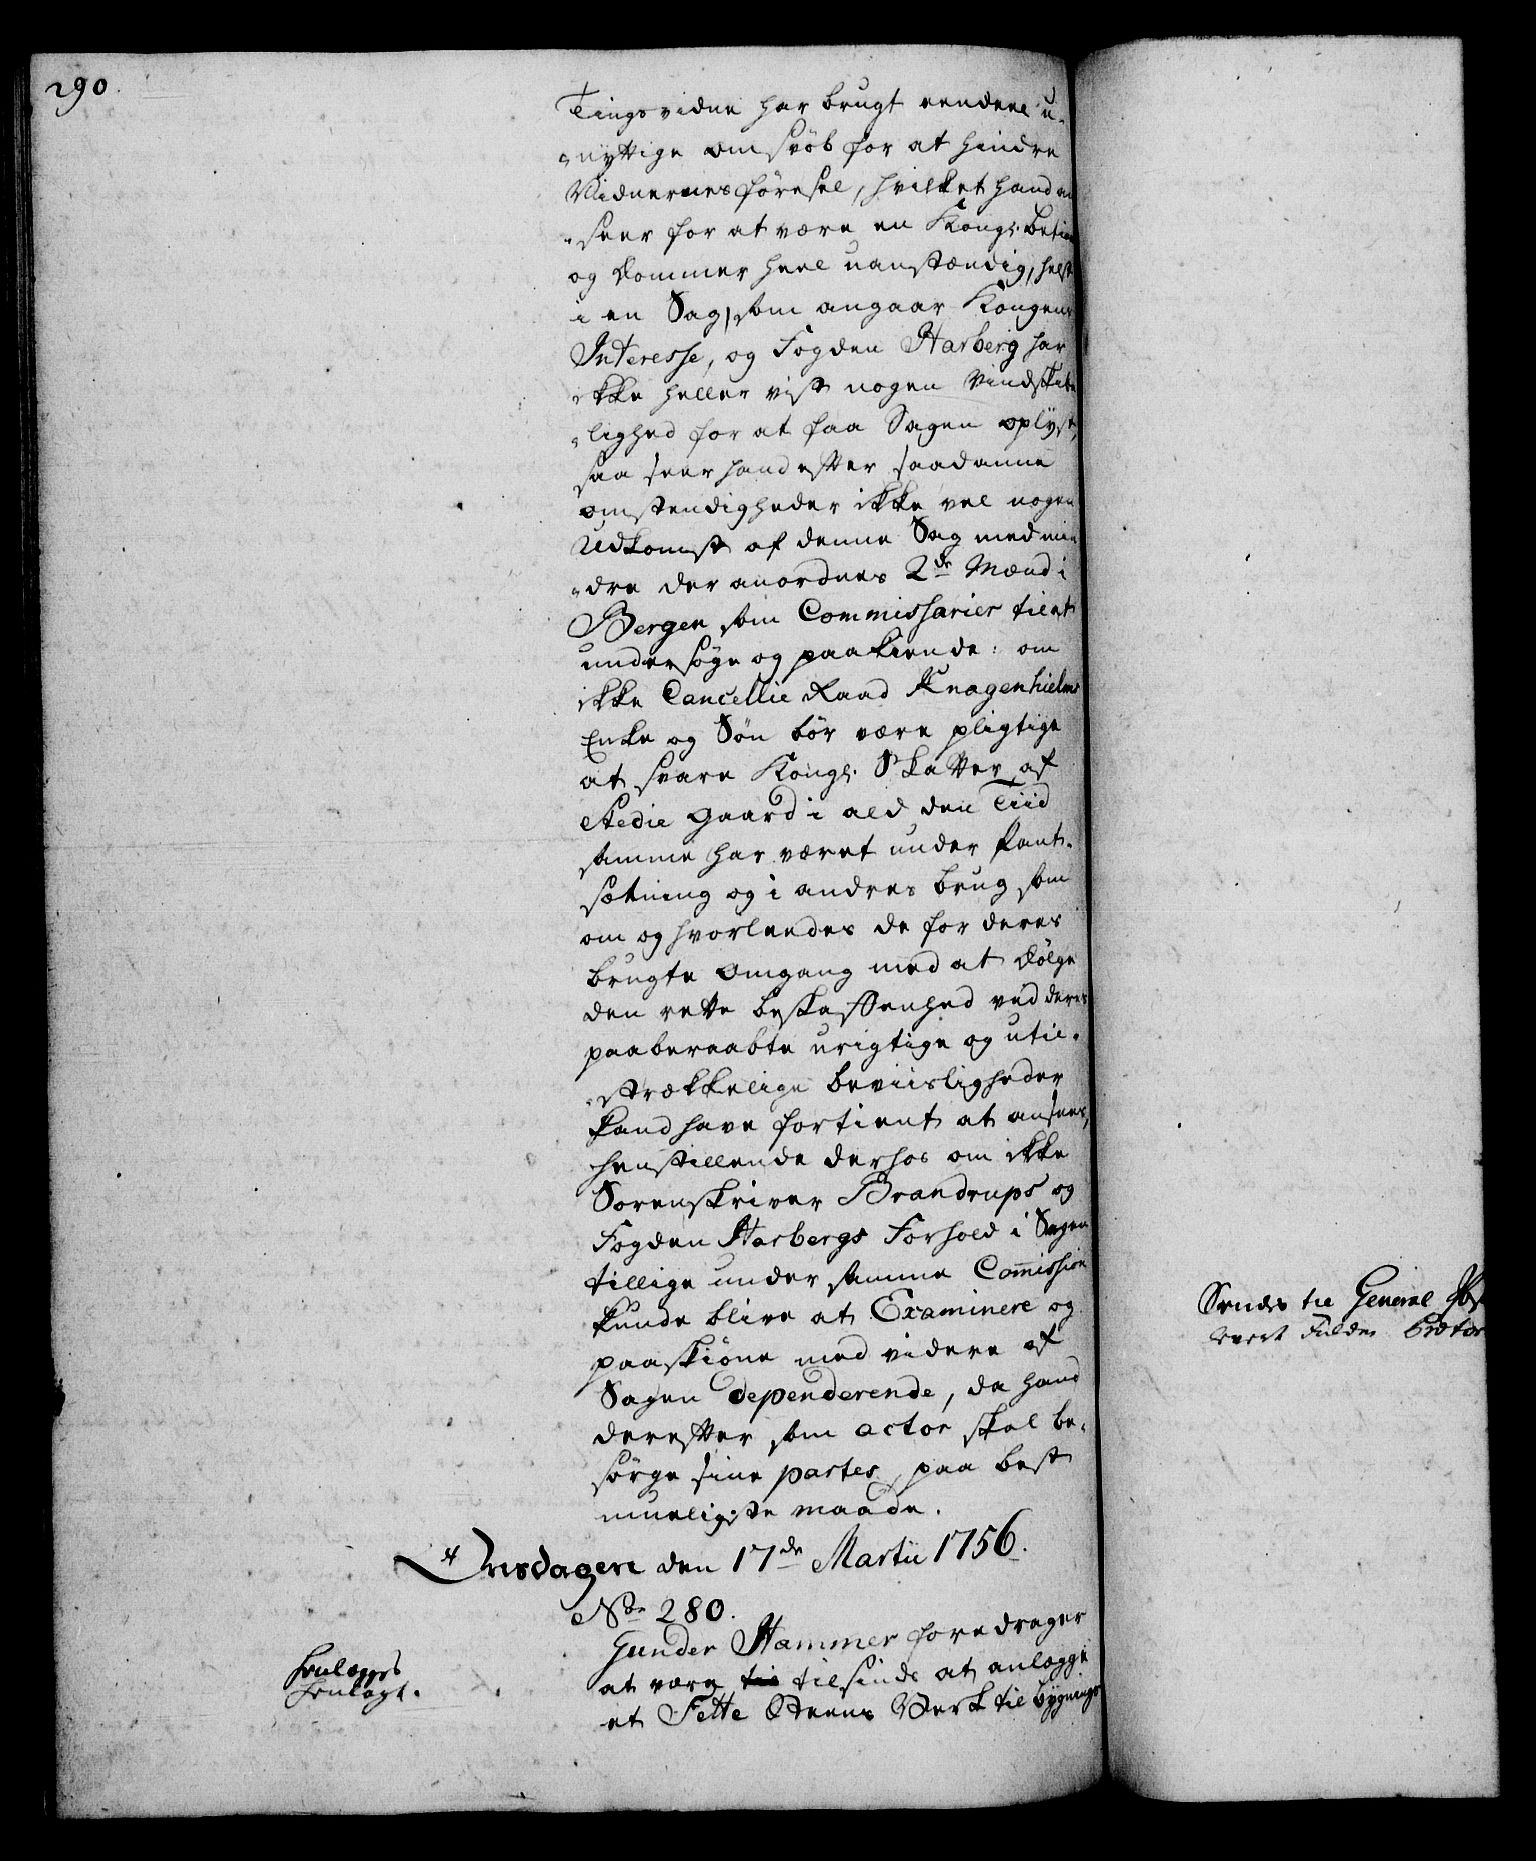 290.
Tingsvidne har brugt eendeel u-
nyttige omsvöb for at hindre
Vidnernes förelse, hvilket hand an
seer for at være en Kongl: betien
og Dommer heel uanstændig, helst
i en Sag, som angaar Kongens
Interesse, og Fogden Harberg har
ikke heller vist nogen Vindskibe
lighed for at faa Sagen oplyst,
saa seer hand efter saadanne
omstendigheder ikke vel nogen
Udkomst af denne Sag med min
dre der anordnes 2de Mænd i
Bergen som Commissarier til at
undersöge og paakiende: om
ikke Cancellie Raad Knagenhielms
Enke og Sön bör være pligtige
at svare Kongl: Skatter af
Stedie gaard i ald den Tiid
samme har været under Pant-
sætning og i andres brug som
om og hvorleedes de for deres
brugte omgang med at dölge
den rette beskaffenhed ved deres
paaberaabte urigtige og util-
strækkelige beviisligheder
kand have fortient at ansees,
henstillende derhos om ikke
Sorenskriver Brandrups og
Fogden Harbergs Forhold i Sagen
tillige under samme Commission
kunde blive at Examinere og
paaskiöne med videre af
Sagen dependerende, da hand
derefter som actor skal be-
sörge sine partes paa best
mueligste maade.
Onsdagen den 17de Martii 1756.
No 280.
Gunder Hammer foredrager
at være til tilsinds at anlægge
et Fette Steens Værk til bygnings
henlegges
henlagt.
Sendes til General